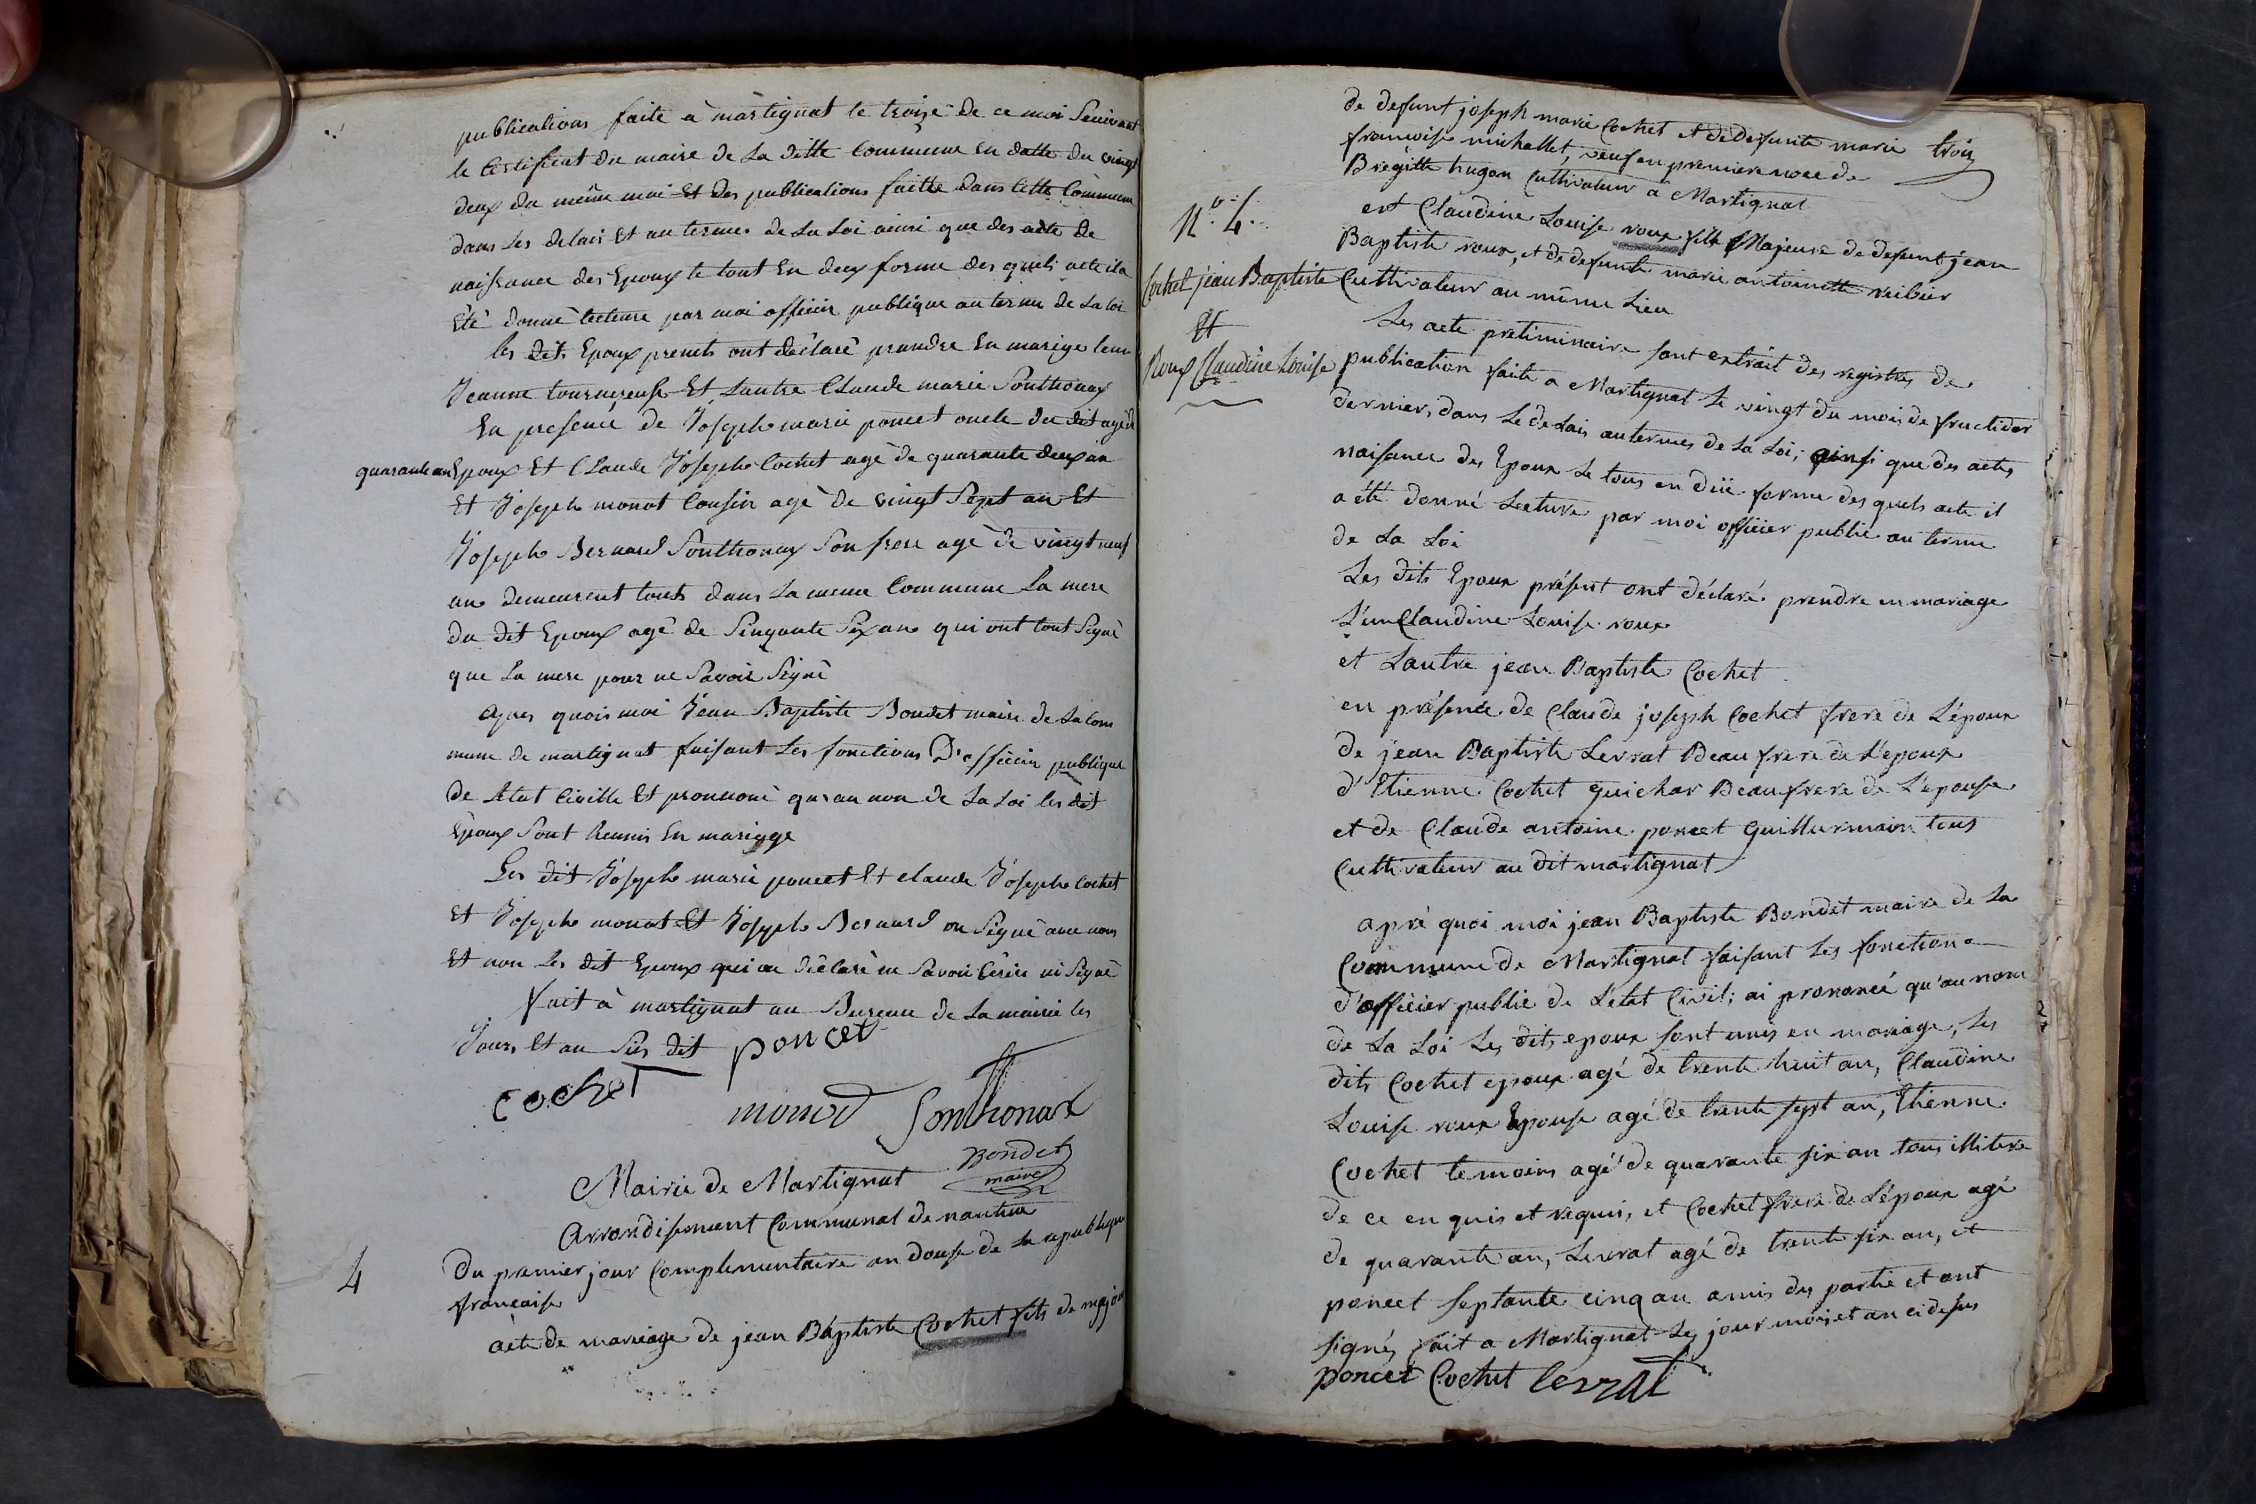 publications faite à martignat le troize de ce moi Seuivant
le Certificat du maire de La ditte Commune en datte du vingt
deux du même moi Et des publications faitte dans Cette Commune
dans Les delais Et au termes de La Loi ainsi que des acte de
naissance des Epoux le tout En deux forme des quels acte il a
Eté donné lecteure par moi officier publique au terme de La loi
les dits Epoux presents ont déclaré prandre En mariage leun
Jeanne tournereuse Et Lautre Claude marie Sonthonax
En presence de Joseph marie poncet oncle du dit agé de
quarante an Epoux Et Claude Joseph Cochet agé de quarante deux an
Et Joseph monot Cousin agé de vingt Sept an Et
Joseph Bernard Sonthonax Son frere agé de vingt neuf
ans demeurent touts dans La meme Commune La mere
du dit Epoux agé de Sinquante Six ans qui ont tout Signé
que La mere pour ne Savoir Signé
apres quois moi Jean Baptiste Bondet maire de La Com
mune de martignat faisant Les fonctions D'officier publique
de Etat Civille Et prononcé qu'au nom de La Loi les dit
Epoux Sont Reunis En mariage
Les dit Joseph marie poncet Et claude Joseph Cochet
Et Joseph monot Et Joseph Bernard on Signé avec nous
Et non Les dit Epoux qui on déclaré ne Savoir Ecrire ni Signé
fait à martignat au Bureau de La mairie les
Jours Et an Sus dit poncet
cochet
monod Sonthonax
Bondet
maire
Mairie de Martignat
Arrondissement Communal de nantua
4
Du premier jour Complimentaire an douse de la republique
francaise
acte de mariage de jean Baptiste Cochet fils de majeur
de defunt joseph marie Cochet et de defunte marie trois
francoise michallet, veuf en premiere noce de
Bregitte hugon Cultivateur a Martignat
N.º 4.
et Claudine Louise roux fille Majeure de defunt jean
Baptiste roux, et de defunte marie antoinette
Cochet jean Baptiste
Et
Roux Claudine Louise
Cultivateur au même Lieu
Les acte preliminaire sont extrait des registres de
publication faite a Martignat Le vingt du mois de fructidor
dernier, dans Le delais au termes de La Loi, ainsi que des actes
naisance des Epoux Le tous en düe forme des quels acte il
a été donné Lecture par moi officier public au terme
de La Loi
Les dits Epoux présent ont déclaré prendre en mariage
L'un Claudine Louise roux
et Lautre jean Baptiste Cochet
en présence de Claude joseph Cochet frere de L'époux
de jean Baptiste Levrat Beau frere de L'epoux
d'Etienne Cochet guichar Beau frere de L'epouse
et de Claude antoine poncet Guillermain tous
Cultivateur au dit martignat
apré quoi moi jean Baptiste Bondet maire de La
Commune de Martignat faisant Les fonction
d'officier public de L'etat Civil; ai prononcé qu'au nom
de La Loi Les dits epoux sont unis en mariage, Les
dits Cochet epoux agé de trente huit an, Claudine
Louise roux Epouse agé de trente sept an, Etienne
Cochet temoins agé de quarante six an tous illitere
de ce en quis et requis, et Cochet frere de L'époux agé
de quarante an, Levrat agé de trente six an, et
poncet septante cinq an amis des partie et ont
signés fait a Martignat Les jour mois et an ci desus
poncet Cochet levrat